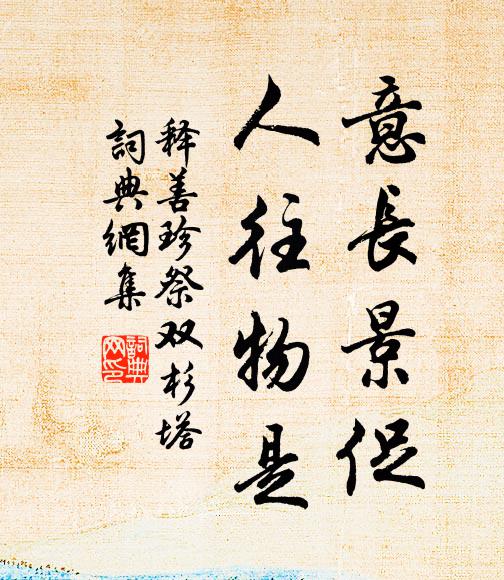 意長景促
人往物是
释善珍祭双杉塔
詞典網集
詞典网印